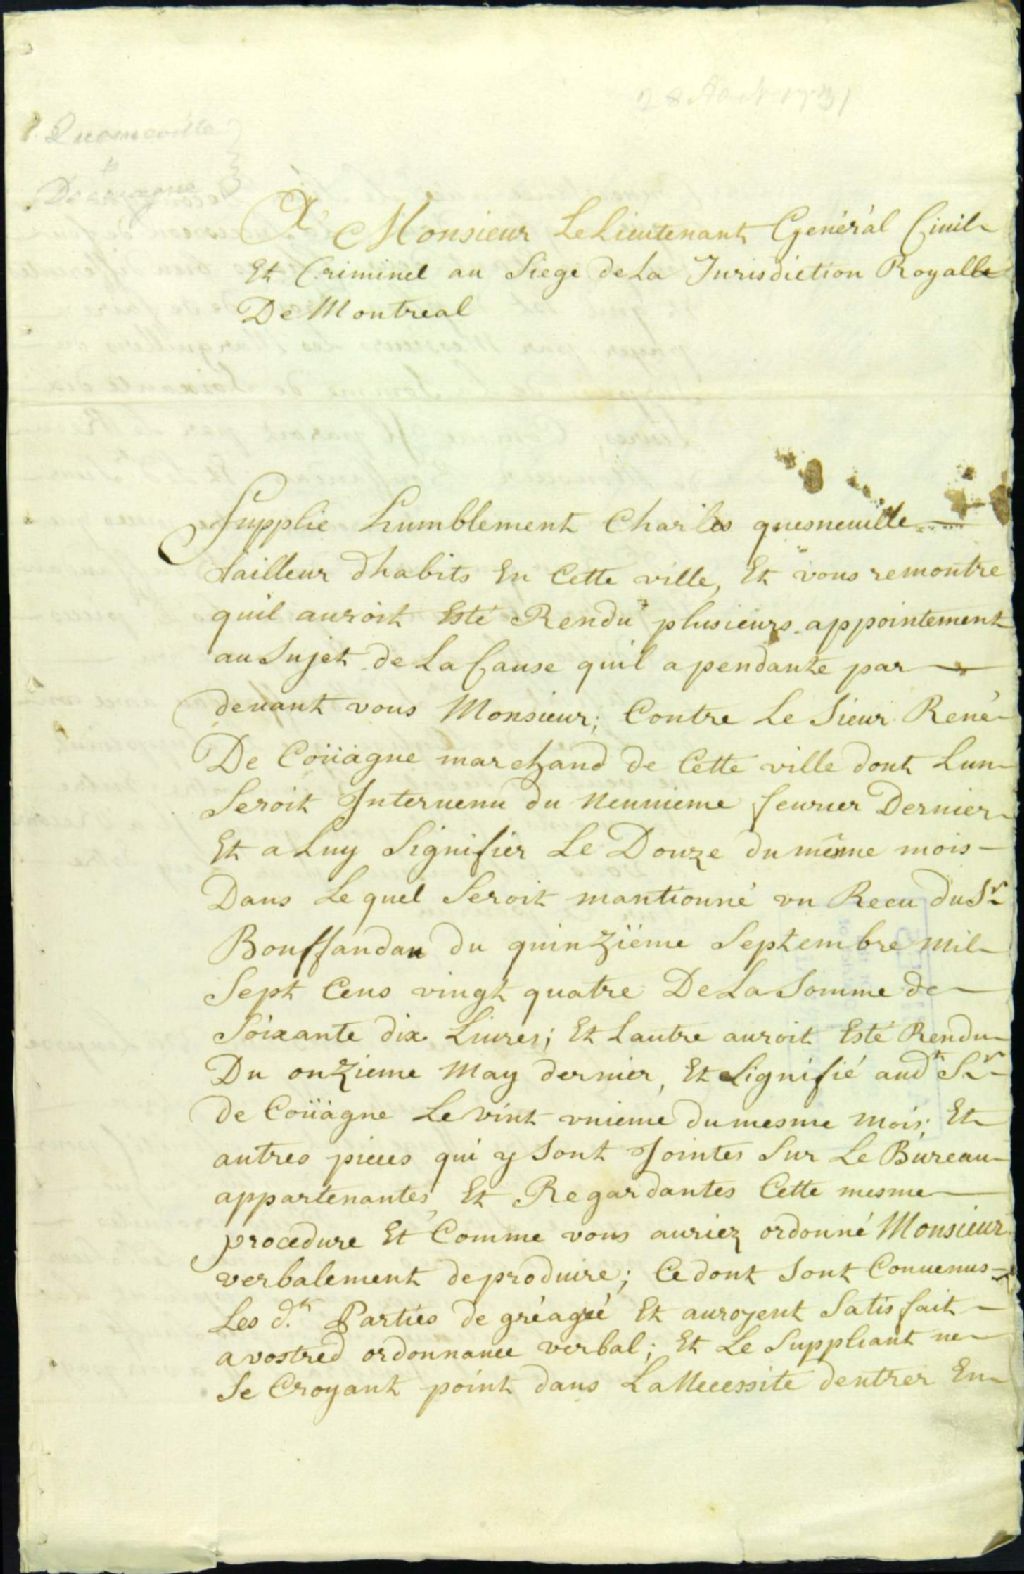 28 Aout 1731
Quesneville
&
Decouagne
A Monsieur Le Lieutenant Genéral Ciuil
Et Criminel au Siege de La Jurisdiction Royalle
De Montreal
Supplie humblement Charles quesneuille
tailleur dhabits En Cette ville, Et vous remontre
quil auroit Esté Rendu plusieurs appointement
au Sujet de La Cause quil a pendante par
deuant vous Monsieur; Contre Le Sieur René
De Coüagne marchand de Cette ville dont Lun
Seroit Interuenu du neuuieme feurier Dernier
Et a Luy Signifier Le Douze du même mois
Dans Lequel Seroit mantionné vn Recu du Sr
Bouffandau du quinziëme Septembre mil
Sept Cens vingt quatre De La Somme de
Soixante dix Liures; Et Lautre auroit Esté Rendu
Du onzieme May dernier, Et Signifié aud. Sr
de Coüagne Le vint vnieme du mesme mois; Et
autres pieces qui y Sont Jointes Sur Le Bureau
appartenantes Et Regardantes Cette mesme
procedure Et Comme vous auriez ordonné Monsieur
verbalement de produire; Ce dont Sont Conuenus
Les d.tes Parties de gréagré Et auroyent Satisfait
a vostred ordonnance verbal; Et Le Suppliant ne
Se Croyant point dans La Necessité dentrer En